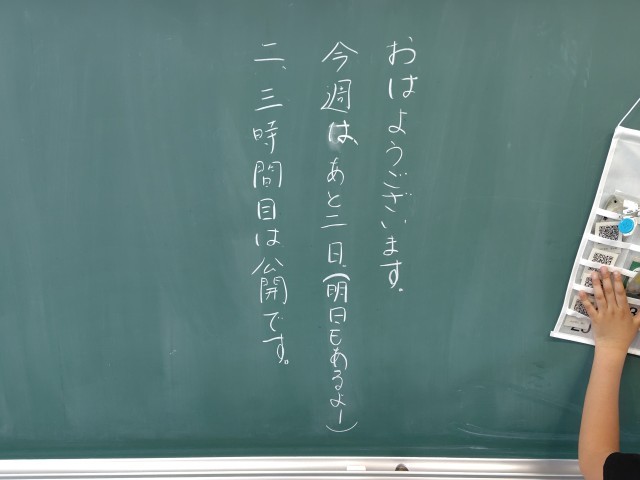 おはようございます。
今週は、あと二日、(明日もあるよー)
二、三時間目は公開です。